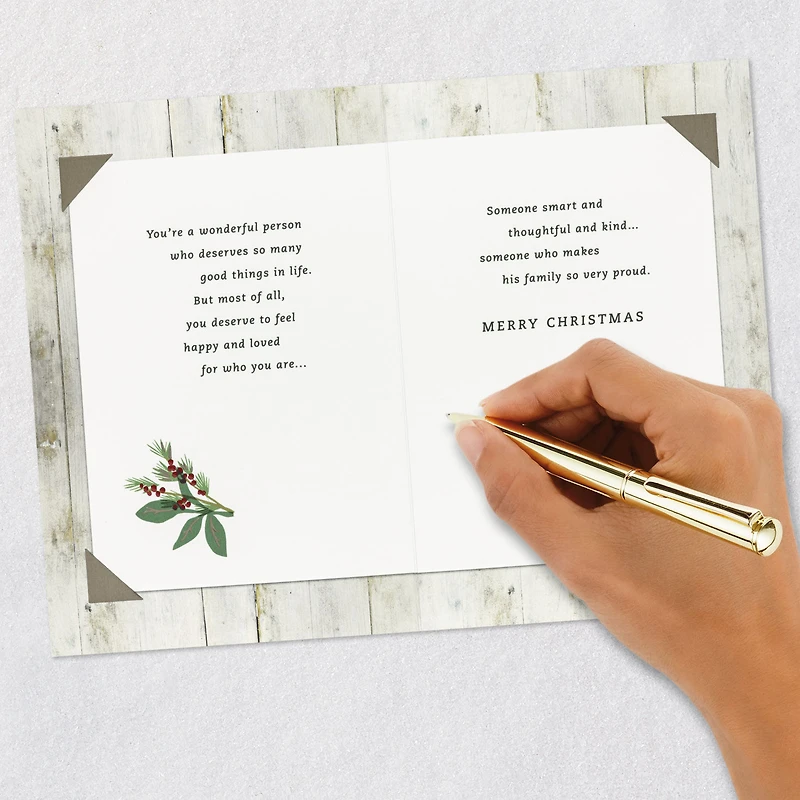 You're a wonderful person
who deserves so many
good things in life.
But most of all,
you deserve to feel
happy and loved
for who you are...
Someone smart and
thoughtful and kind...
someone who makes
his family so very proud.
MERRY CHRISTMAS